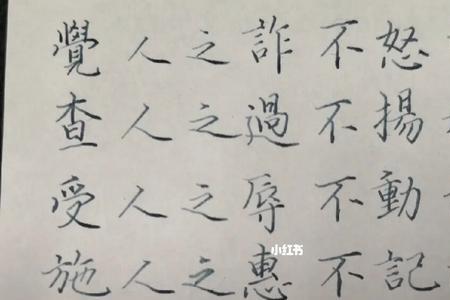 覺人之詐不怒
查人之過不揚
受人之辱不動
施人之惠不記
小红书